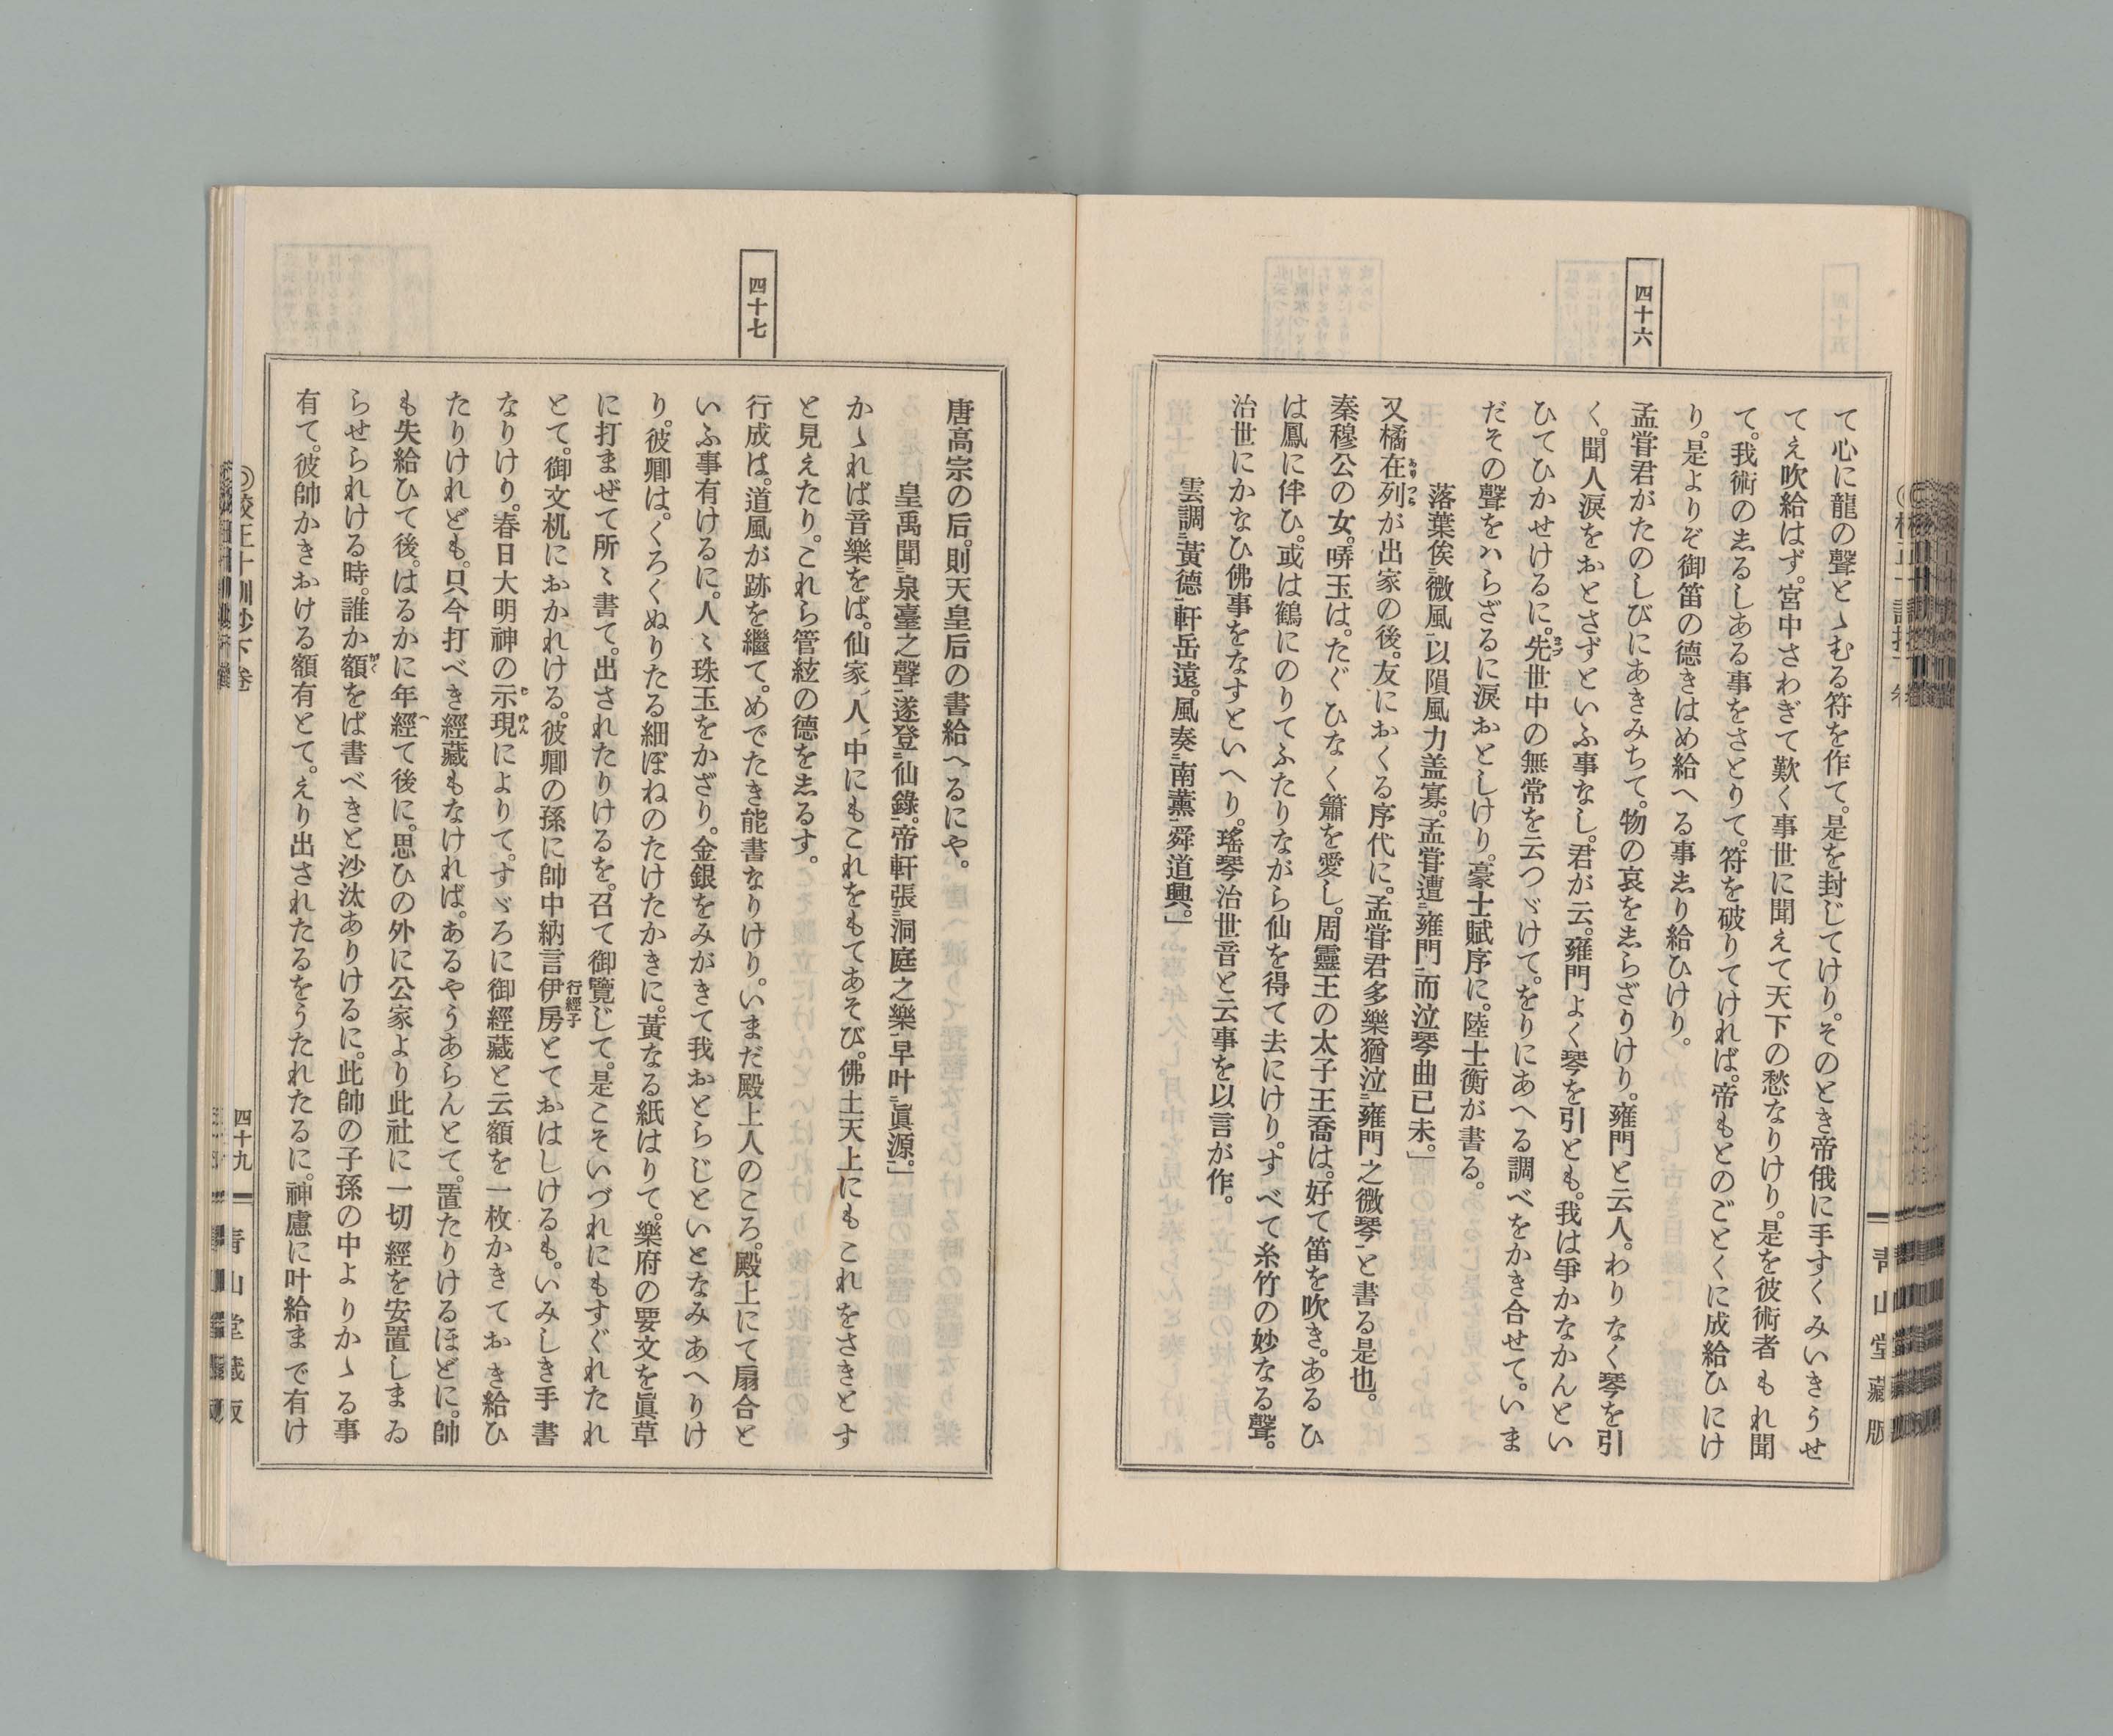 四十六
て心に龍の聲とゝむる符を作て。是を封じてけり。そのとき帝俄に手すくみいきうせ
てえ吹給はず。宮中さわぎて歎く事世に聞えて天下の愁なりけり。是を彼術者もれ聞
て。我術の志るしある事をさとりて。符を破りてければ。帝もとのごとくに成給ひにけ
り。是よりぞ御笛の德きはめ給へる事志り給ひけり。
孟甞君がたのしびにあきみちて。物の哀を志らざりけり。雍門と云人。わりなく琴を引
く。聞人淚をおとさずといふ事なし。君が云。雍門よく琴を引とも。我は爭かなかんとい
ひてひかせけるに。先世中の無常を云つゞけて。をりにあへる調べをかき合せて。いま
だその聲をハらざるに淚おとしけり。豪士賦序に。陸士衡が書る。
落葉俟二微風一以隕風力盖寡。孟甞遭二雍門一而泣琴曲已未。」
又橘在列が出家の後。友におくる序代に。孟甞君多樂猶泣二雍門之微琴一と書る是也。
秦穆公の女。哢玉は。たぐひなく簫を愛し。周靈王の太子王喬は。好て笛を吹き。あるひ
は鳳に伴ひ。或は鶴にのりてふたりながら仙を得て去にけり。すべて糸竹の妙なる聲。
治世にかなひ佛事をなすといへり。瑤琴治世音と云事を以言が作。
雲調二黃德一軒岳遠。風奏二南薰一舜道興。」
青山堂藏版
四十七
唐高宗の后。則天皇后の書給へるにや。
皇禹聞二泉臺之聲一遂登二仙錄。帝軒張二洞庭之樂一早叶二眞源。」
かゝれば音樂をば。仙家ノ人ノ中にもこれをもてあそび。佛土天上にもこれをさきとす
と見えたり。これら管絃の德を志るす。
行成は。道風が跡を繼て。めでたき能書なりけり。いまだ殿上人のころ。殿上にて扇合と
いふ事有けるに。人〻珠玉をかざり。金銀をみがきて我おとらじといとなみあへりけ
り。彼卿は。くろくぬりたる細ぼねのたけたかきに。黃なる紙はりて。樂府の要文を眞草
に打まぜて所〻書て。出されたりけるを。召て御覽じて。是こそいづれにもすぐれたれ
とて。御文机におかれける。彼卿の孫に帥中納言伊房行經子とておはしけるも。いみしき手書
なりけり。春日大明神の示現によりて。すゞろに御經藏と云額を一枚かきておき給ひ
たりけれども。只今打べき經藏もなければ。あるやうあらんとて。置たりけるほどに。帥
も失給ひて後。はるかに年經て後に。思ひの外に公家より此社に一切經を安置しまゐ
らせられける時。誰か額をば書べきと沙汰ありけるに。此帥の子孫の中よりかゝる事
有て。彼帥かきおける額有とて。えり出されたるをうたれたるに。神慮に叶給まで有け
◎校正十訓抄下卷
四十九
青山堂藏版